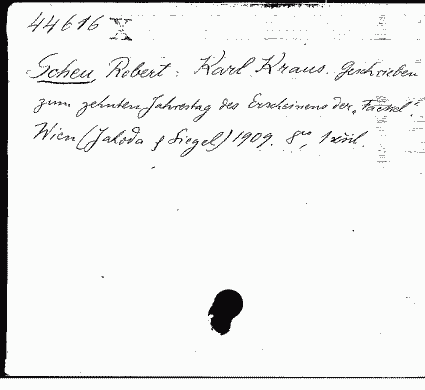 44616 X
Scheu, Robert: Karl Kraus. Geschrieben
zum zehnten Jahrestag des Erscheinens der „Fackel“
Wien (Jahoda & Siegel) 1909. 8°,